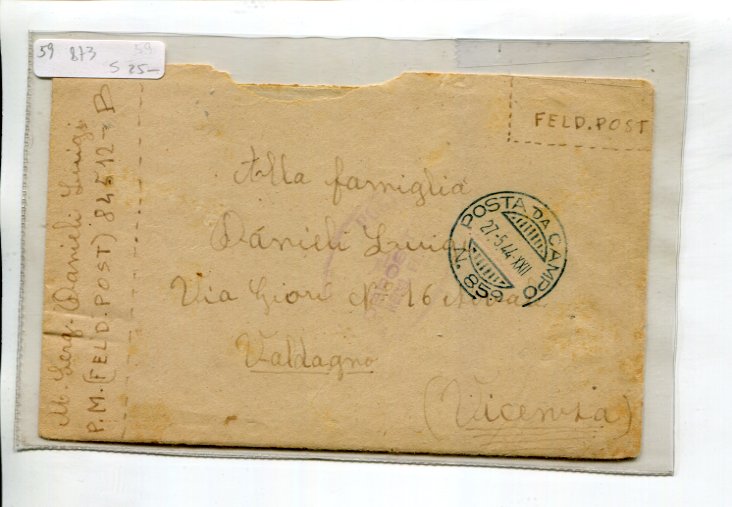 59 873 59
S 25-
M. Serg. Danieli Luigi
P.M. (FELD.POST) 84512-B
FELD.POST
Alla famiglia
Danieli Luigi
Via Giorì N. 16
Valdagno
(Vicenza)
POSTA DA CAMPO
27-5.44-XXII
N. 858